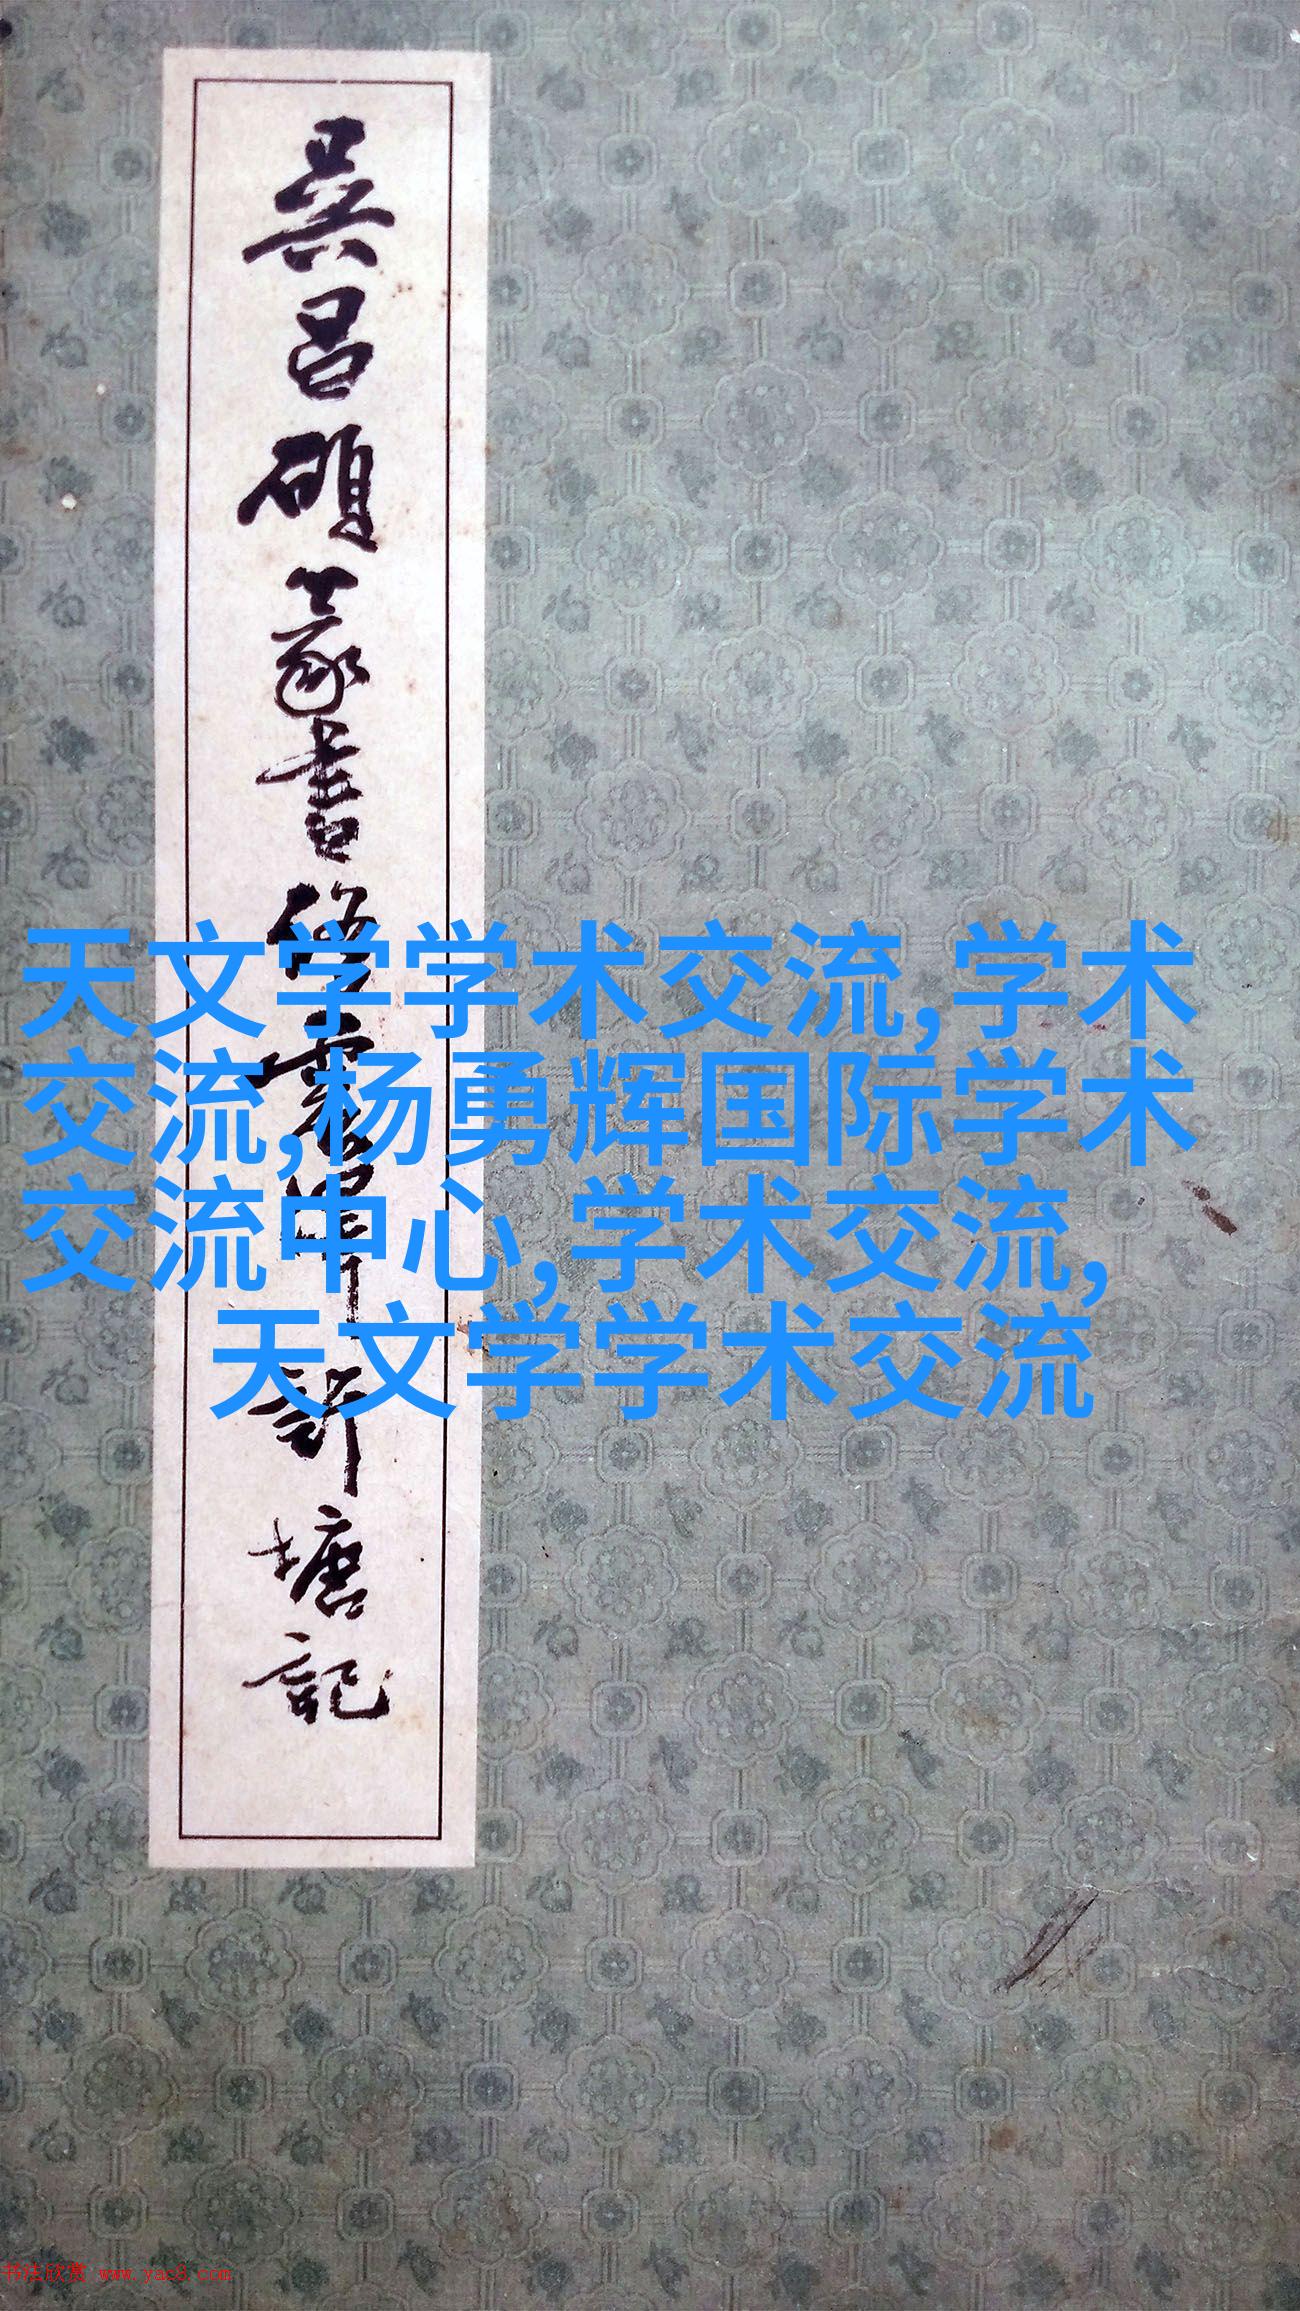 吳昌碩篆書修震澤許塘記
天文学学术交流,学术
交流,杨勇辉国际学术
交流中心,学术交流,
天文学学术交流
书法欣赏 www.yac8.com